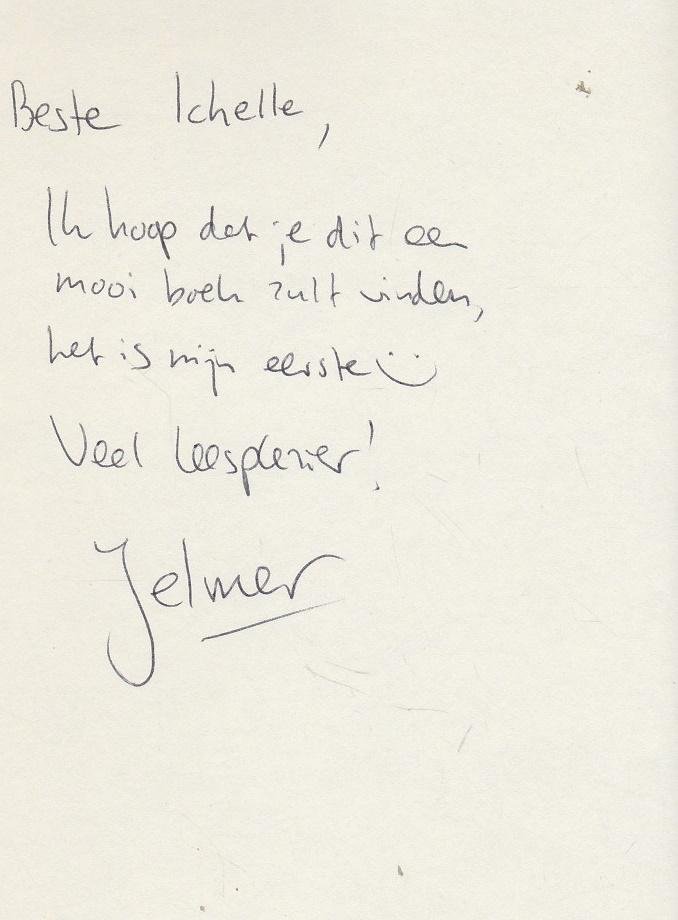 Beste Ichelle,
Ik hoop dat je dit een
mooi boek zult vinden,
het is mijn eerste
Veel leesplezier!
Jelmer